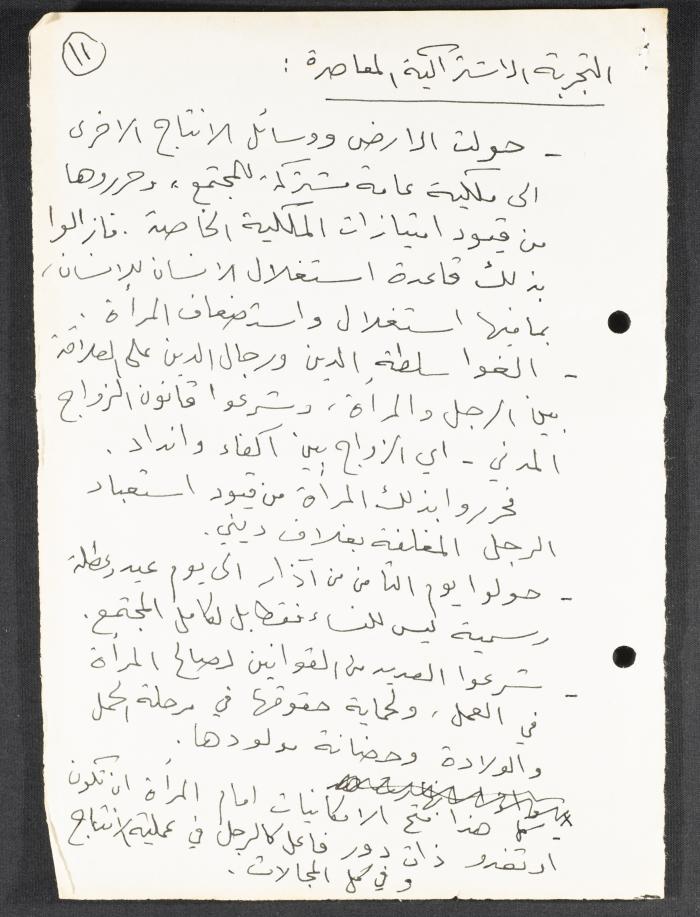 ١١
التجربة الاشتراكية المعاصرة :
- حولت الارض ووسائل الانتاج الاخرى
الى ملكية عامة مشتركة للمجتمع، وحرروها
من قيود امتيازات الملكية الخاصة. فازالوا
بذلك قاعدة استغلال الانسان للانسان،
بما فيها استغلال واستضعاف المرأة .
- الغوا سلطة الدين ورجال الدين على العلاقة
بين الرجل والمرأة، وشرعوا قانون الزواج
المدني - اي الزواج بين اكفاء وانداد .
فحرروا بذلك المرأة من قيود استعباد
الرجل المغلفة بغلاف ديني.
- حولوا يوم الثامن من آذار الى يوم عيد وعطلة
رسمية ليس للنساء فقط بل لكامل المجتمع.
- شرعوا العديد من القوانين لصالح المرأة
في العمل، ولحماية حقوقها في مرحلة الحمل
والولادة وحضانة مولودها.
كل هذا فتح الامكانيات امام المرأة ان تكون
او تغدو ذات دور فاعل كالرجل في عملية الانتاج
وفي كل المجالات .